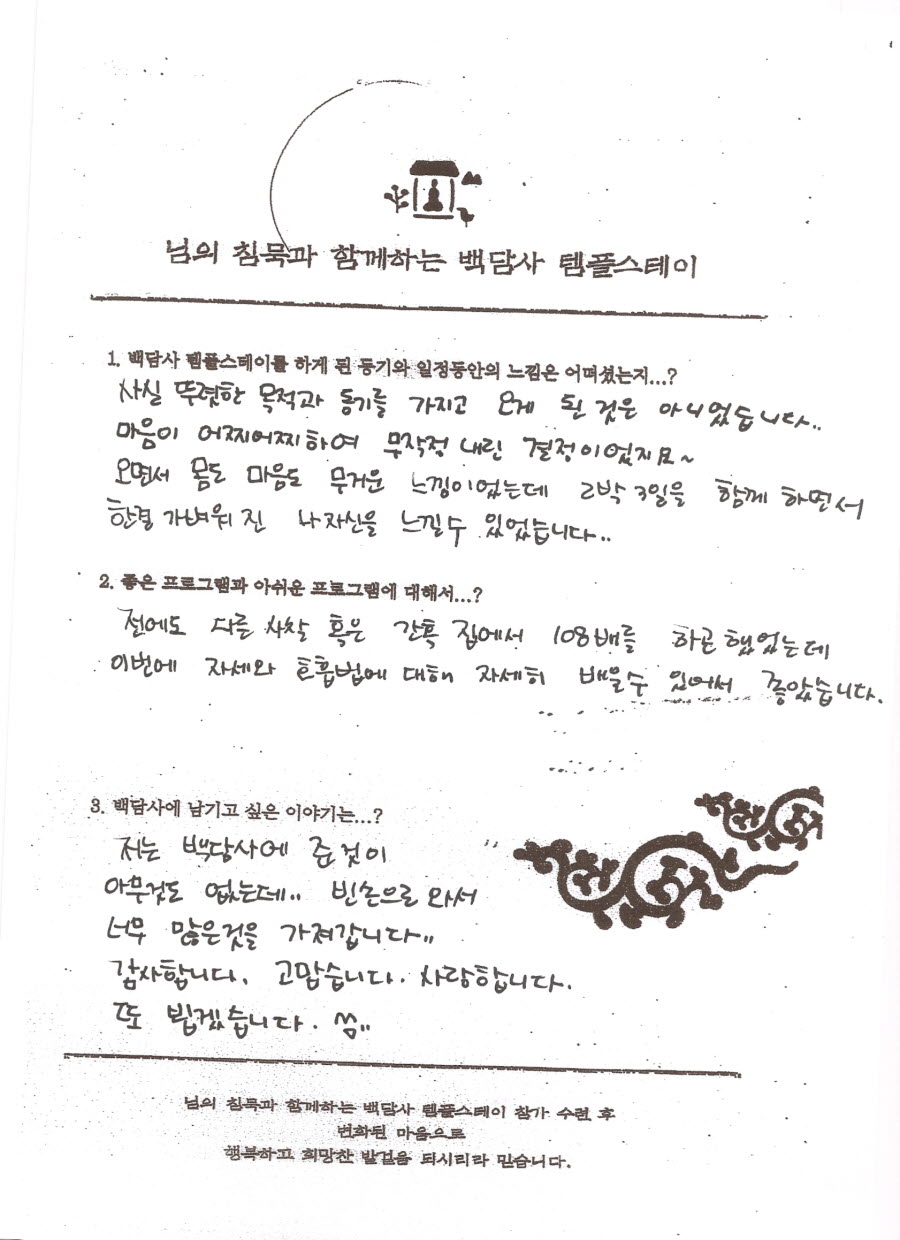 님의 침묵과 함께하는 백담사 템플스테이
1. 백담사 템플스테이를 하게 된 동기와 일정동안의 느낌은 어떠셨는지...?
사실 뚜렷한 목적과 동기를 가지고 오게 된 것은 아니었습니다..
마음이 어찌어찌하여 무작정 내린 결정이었지요~
오면서 몸도 마음도 무거운 느낌이었는데 2박 3일을 함께 하면서
한결 가벼워진 나 자신을 느낄수 있었습니다..
2. 좋은 프로그램과 아쉬운 프로그램에 대해서...?
전에도 다른 사찰 혹은 간혹 집에서 108배를 하곤 했었는데
이번에 자세와 호흡법에 대해 자세히 배울수 있어서 좋았습니다.
3. 백담사에 남기고 싶은 이야기는...?
저는 백담사에 준 것이
아무것도 없는데.. 빈손으로 와서
너무 많은것을 가져갑니다..
감사합니다. 고맙습니다. 사랑합니다.
또 뵙겠습니다.
님의 침묵과 함께하는 백담사 템플스테이 참가 수련 후
변화된 마음으로
행복하고 희망찬 발걸음 되시리라 믿습니다.